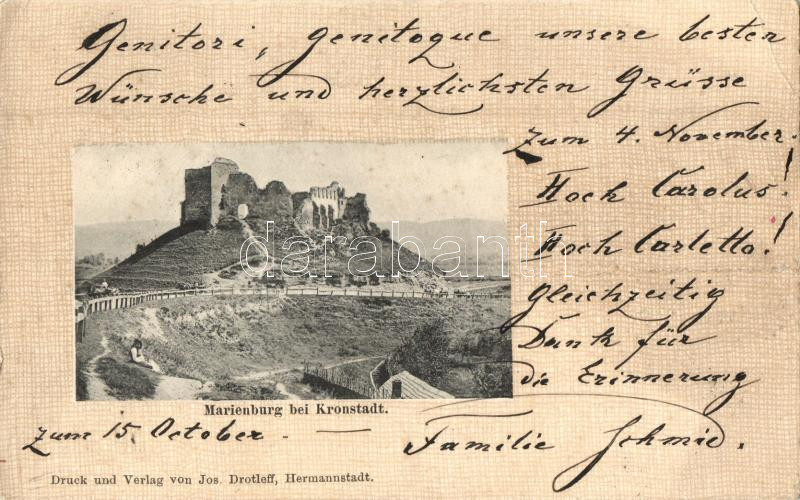 Genitori, genitoque unsere besten
Wünsche und herzlichsten Grüsse
zum 4. November!
Hoch Carolus!
Hoch Carletto!
Gleichzeitig
Dank für
die Erinnerung
zum 15. October. —
Familie Schmid.
Marienburg bei Kronstadt.
Druck und Verlag von Jos. Drotleff, Hermannstadt.
darabanth.com